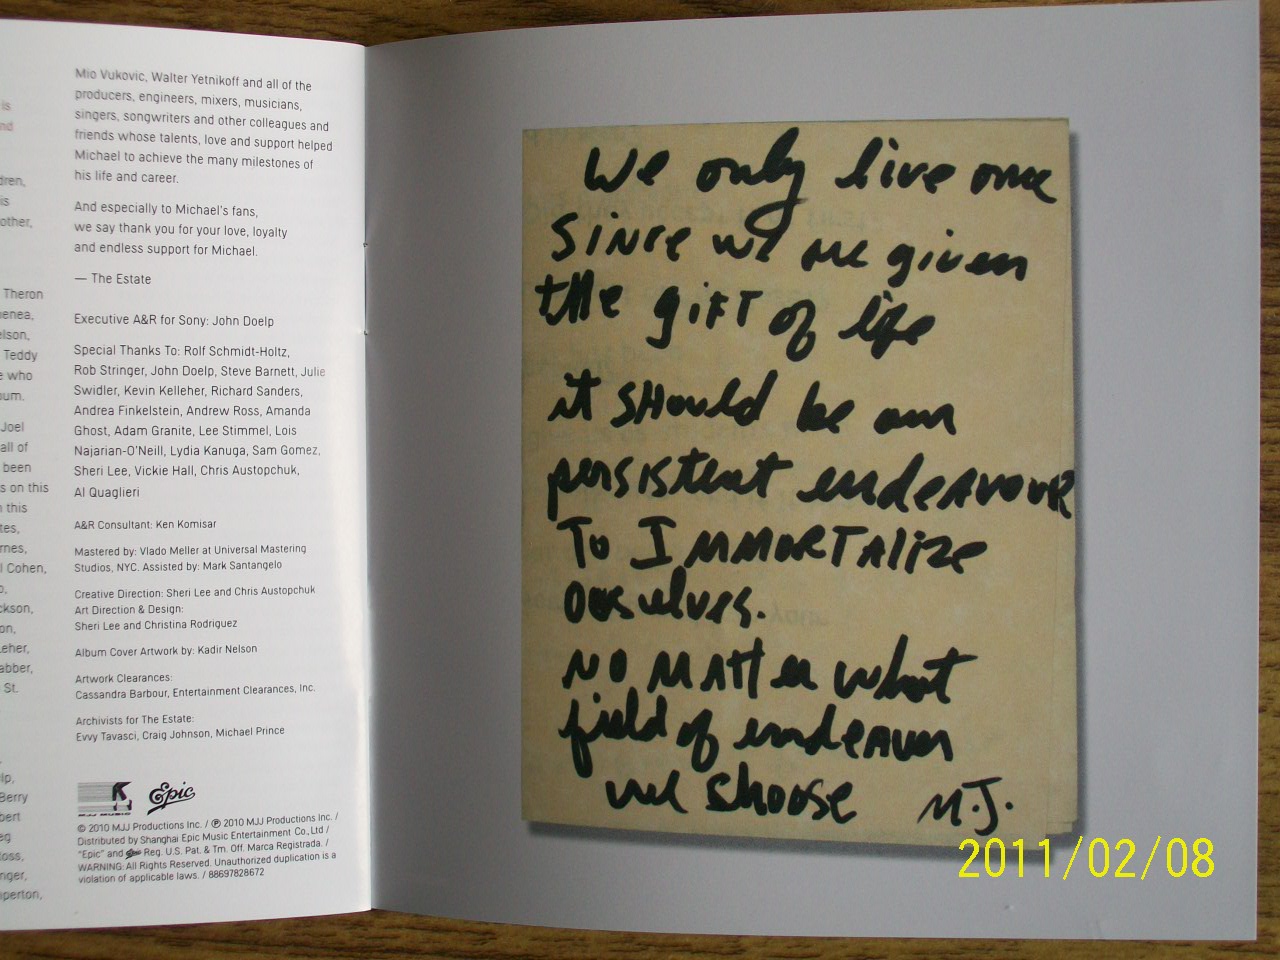 is
nd
dren,
is
other,
Theron
enea,
elson,
Teddy
e who
bum.
Joel
all of
been
s on this
n this
tes,
rnes,
l Cohen,
o,
ckson,
on,
eher,
abber,
St.
lp,
Berry
bert
eg
loss,
nger,
iperton,
Mio Vukovic, Walter Yetnikoff and all of the
producers, engineers, mixers, musicians,
singers, songwriters and other colleagues and
friends whose talents, love and support helped
Michael to achieve the many milestones of
his life and career.
And especially to Michael's fans,
we say thank you for your love, loyalty
and endless support for Michael.
— The Estate
Executive A&R for Sony: John Doelp
Special Thanks To: Rolf Schmidt-Holtz,
Rob Stringer, John Doelp, Steve Barnett, Julie
Swidler, Kevin Kelleher, Richard Sanders,
Andrea Finkelstein, Andrew Ross, Amanda
Ghost, Adam Granite, Lee Stimmel, Lois
Najarian-O'Neill, Lydia Kanuga, Sam Gomez,
Sheri Lee, Vickie Hall, Chris Austopchuk,
Al Quaglieri
A&R Consultant: Ken Komisar
Mastered by: Vlado Meller at Universal Mastering
Studios, NYC. Assisted by: Mark Santangelo
Creative Direction: Sheri Lee and Chris Austopchuk
Art Direction & Design:
Sheri Lee and Christina Rodriguez
Album Cover Artwork by: Kadir Nelson
Artwork Clearances:
Cassandra Barbour, Entertainment Clearances, Inc.
Archivists for The Estate:
Evvy Tavasci, Craig Johnson, Michael Prince
MJJ MUSIC Epic
© 2010 MJJ Productions Inc. / ℗ 2010 MJJ Productions Inc. /
Distributed by Shanghai Epic Music Entertainment Co., Ltd /
"Epic" and Epic Reg. U.S. Pat. & Tm. Off. Marca Registrada. /
WARNING: All Rights Reserved. Unauthorized duplication is a
violation of applicable laws. / 88697828672
We only live once
Since we are given
the gift of life
it should be our
persistent endeavour
To Immortalize
ourselves.
no matter what
field of endeavor
we shoose M.J.
2011/02/08